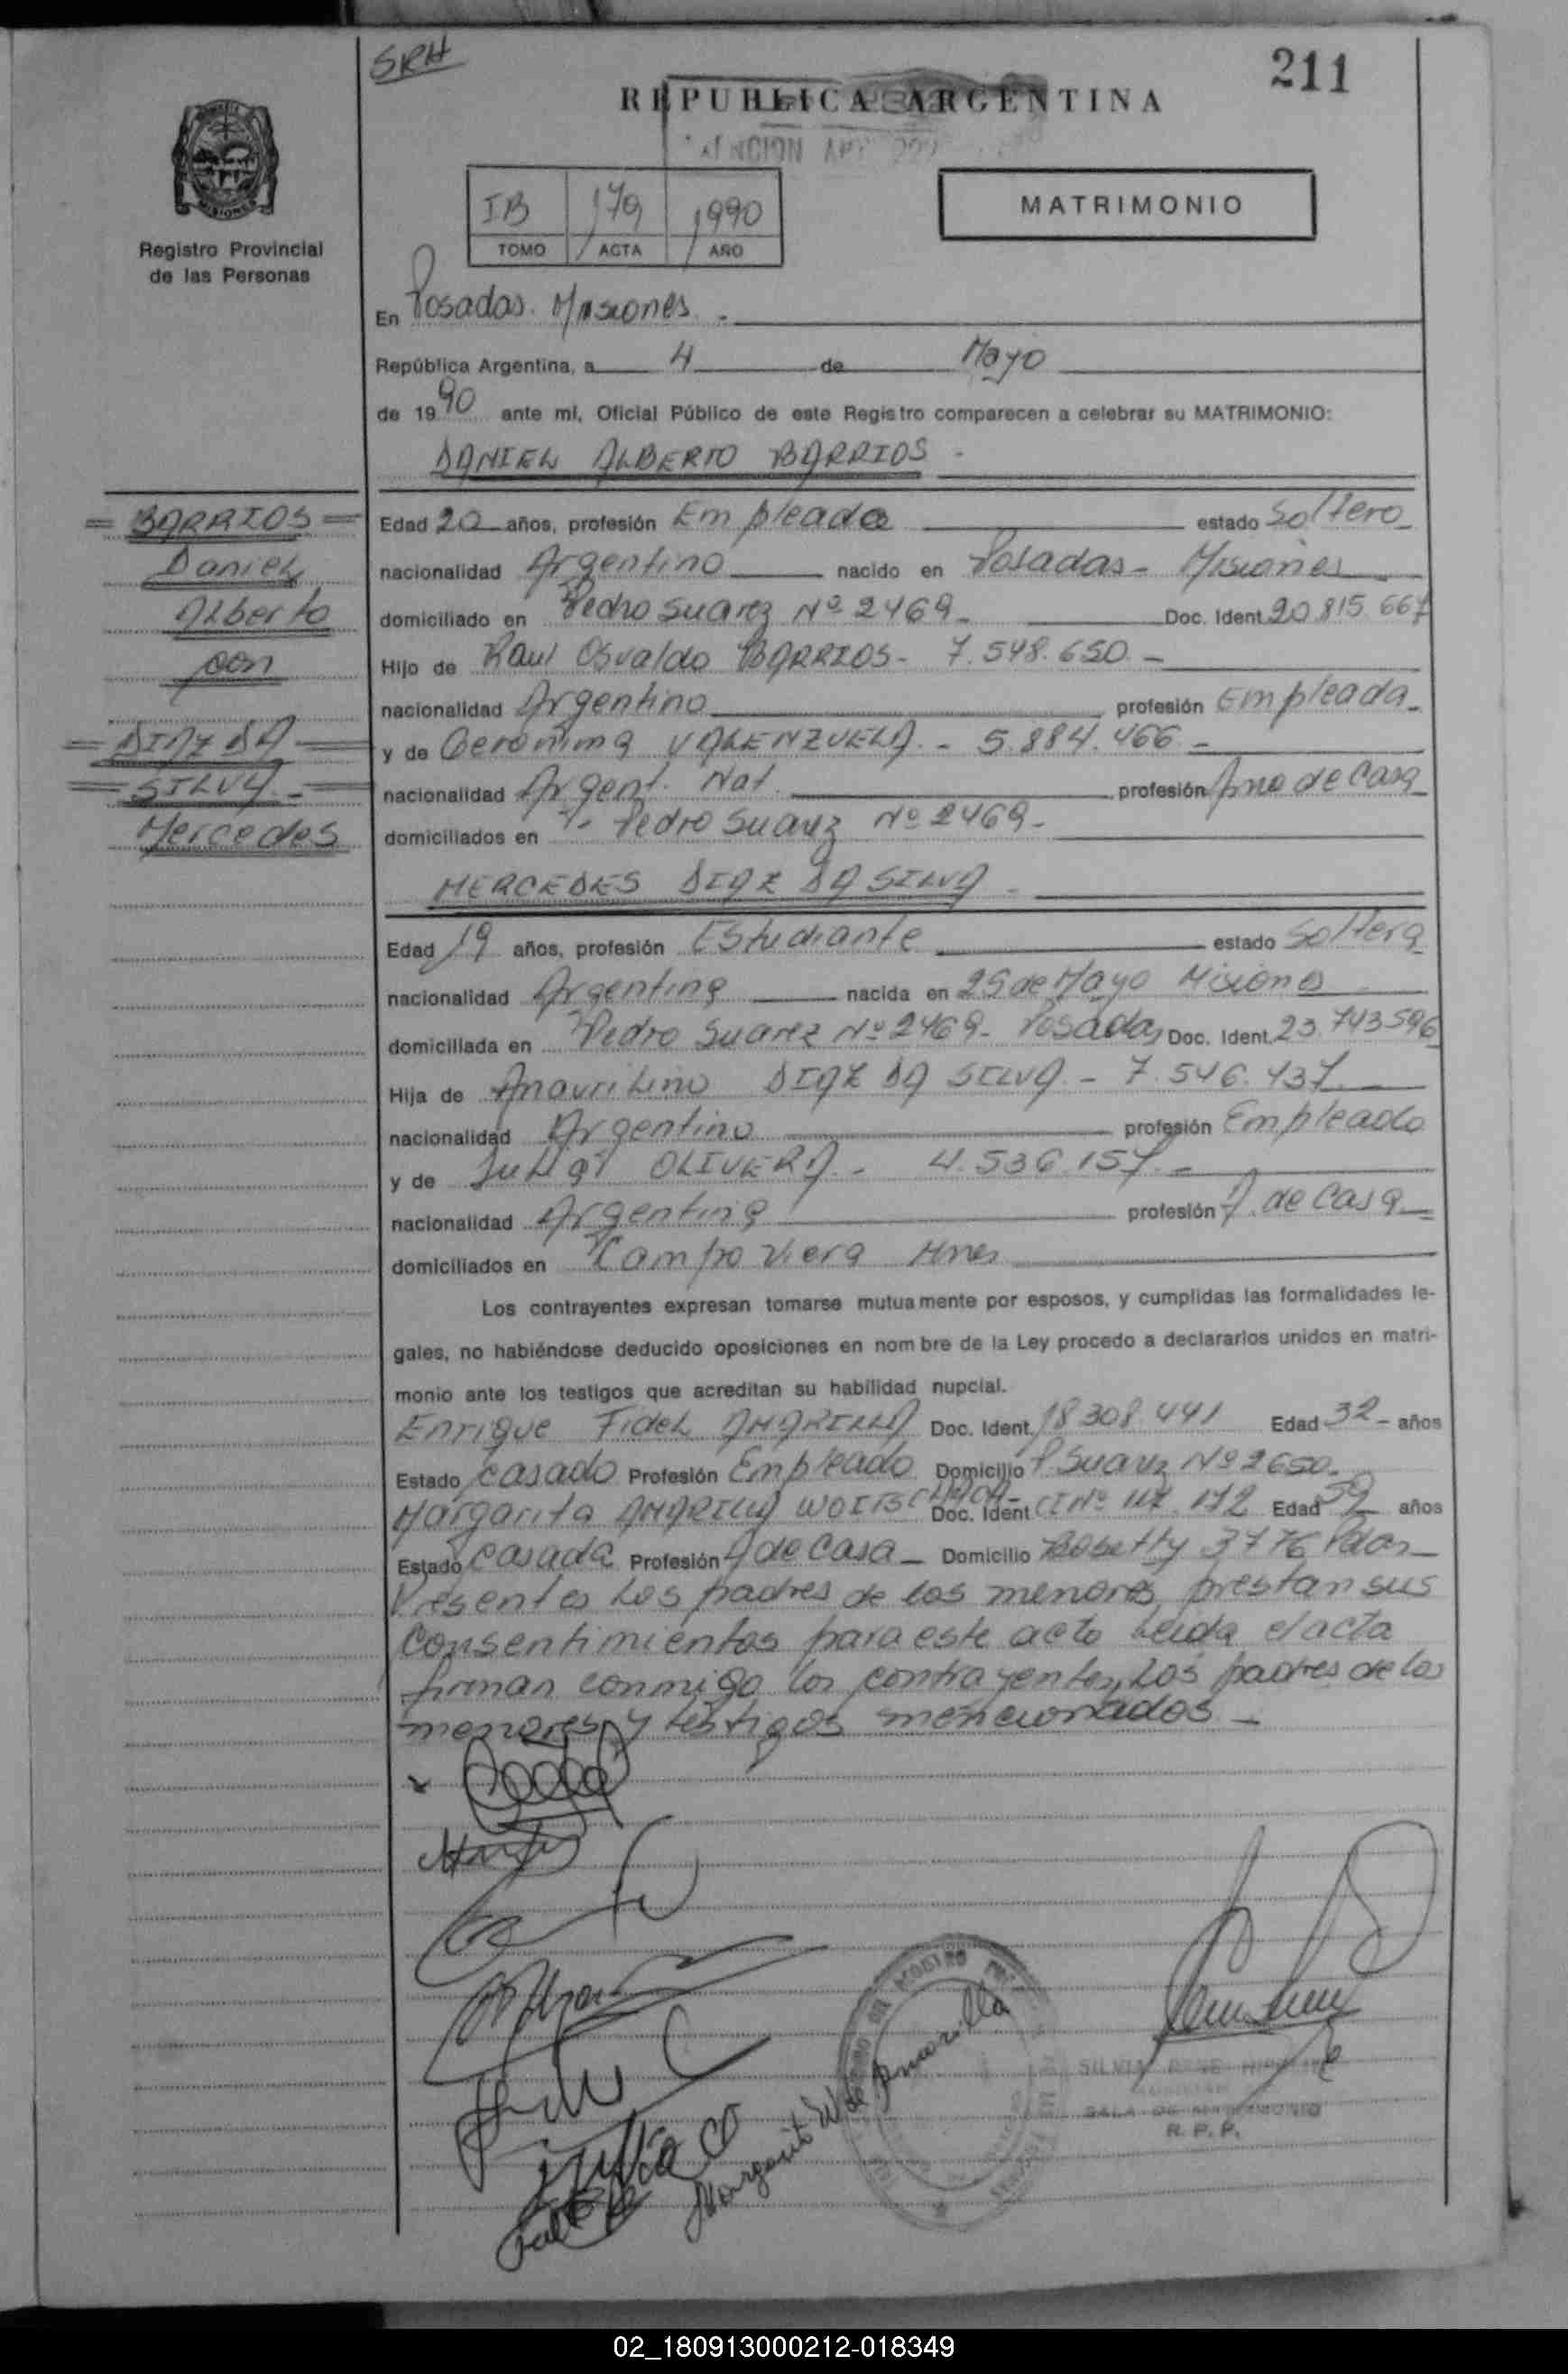 SRH
211
REPUBLICA ARGENTINA
Registro Provincial
de las Personas
IB 179 1990
TOMO ACTA AÑO
MATRIMONIO
En Posadas. Misiones. -
República Argentina, a 4 de Mayo
de 1990 ante mí, Oficial Público de este Registro comparecen a celebrar su MATRIMONIO:
DANIEL ALBERTO BARRIOS -
= BARRIOS =
Daniel
Alberto
con
= DIAZ DA =
= SILVA. - =
Mercedes
Edad 20 años, profesión Empleado estado Soltero
nacionalidad Argentino nacido en Posadas - Misiones
domiciliado en Pedro Suarez Nº 2469 - Doc. Ident. 20.815.667
Hijo de Raul Osvaldo BARRIOS - 7.548.650. -
nacionalidad Argentino profesión Empleada -
y de Geronima VALENZUELA. - 5.884.466 -
nacionalidad Argent. Nat. profesión Ama de Casa
domiciliados en Pedro Suarez Nº 2469 -
MERCEDES DIAZ DA SILVA -
Edad 19 años, profesión Estudiante estado Soltera
nacionalidad Argentina nacida en 25 de Mayo Misiones
domiciliada en Pedro Suarez Nº 2469 - Posadas Doc. Ident. 23.743.596
Hija de DIAZ DA SILVA. - 7.546.437.
nacionalidad Argentino profesión Empleado
y de OLIVERA. - 4.536.157. -
nacionalidad Argentina profesión A. de Casa
domiciliados en Campo Viera Mnes
Los contrayentes expresan tomarse mutuamente por esposos, y cumplidas las formalidades le-
gales, no habiéndose deducido oposiciones en nombre de la Ley procedo a declararlos unidos en matri-
monio ante los testigos que acreditan su habilidad nupcial.
Enrique Fidel AMARILLA Doc. Ident. 18.308.441 Edad 32 - años
Estado Casado Profesión Empleado Domicilio P. Suarez Nº 2650 -
Margarita AMARILLA Doc. Ident. CI Nº 117.172 Edad 59 años
Estado Casada Profesión A de Casa - Domicilio 3776 Pdas -
Presentes los padres de los menores prestan sus
Consentimientos para este acto leida el acta
firman conmigo los contrayentes, los padres de los
menores y testigos mencionados -
Margarita W de Amarilla
SALA DE MATRIMONIO
R. P. P.
02_180913000212-018349